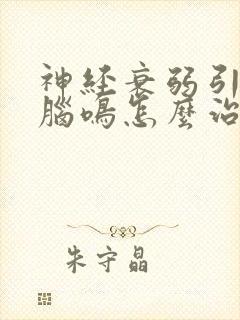 神經衰弱引
腦鳴怎麼治
朱守晶